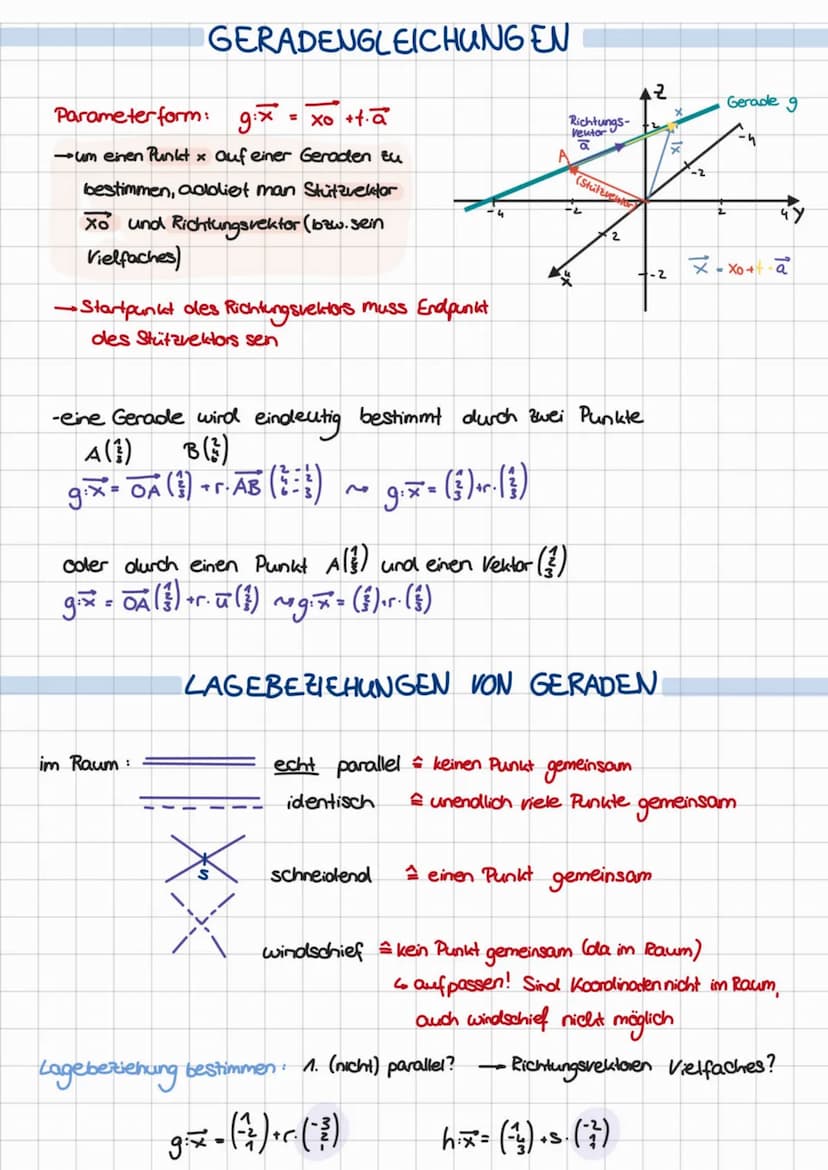 GERADENGLEICHUNGEN
Parameterform: g:x⃗ = x0⃗ + t·a⃗
→ um einen Punkt x auf einer Geraden zu
bestimmen, addiert man Stützvektor
x0⃗ und Richtungsvektor (bzw. sein
Vielfaches)
→ Startpunkt des Richtungsvektors muss Endpunkt
des Stützvektors sen
Z
Gerade g
Richtungs-
vektor
a⃗
x
x⃗
A
(Stützvektor)
2
-4
-2
-4
-2
2
4 y
2
4
x
-2
x⃗ = x0 + t · a⃗
-eine Gerade wird eindeutig bestimmt durch zwei Punkte
A(1 2 3) B(2 4 6)
g:x⃗ = OA⃗ (1 2 3) + r · AB⃗ (2-1 4-2 6-3) ~ g:x⃗ = (1 2 3) + r · (1 2 3)
oder durch einen Punkt A(1 2 3) und einen Vektor (1 2 3)
g:x⃗ = OA⃗ (1 2 3) + r · u⃗ (1 2 3) ~ g:x⃗ = (1 2 3) + r · (1 2 3)
LAGEBEZIEHUNGEN VON GERADEN
im Raum: echt parallel ≙ keinen Punkt gemeinsam
identisch ≙ unendlich viele Punkte gemeinsam
S
schneidend ≙ einen Punkt gemeinsam
windschief ≙ kein Punkt gemeinsam (da im Raum)
↳ aufpassen! Sind Koordinaden nicht im Raum,
auch windschief nicht möglich
Lagebeziehung bestimmen: 1. (nicht) parallel? → Richtungsvektoren Vielfaches?
g:x⃗ = (1 -2 1) + r · (-3 2 1) h:x⃗ = (-1 -4 3) + s · (-2 1 1)